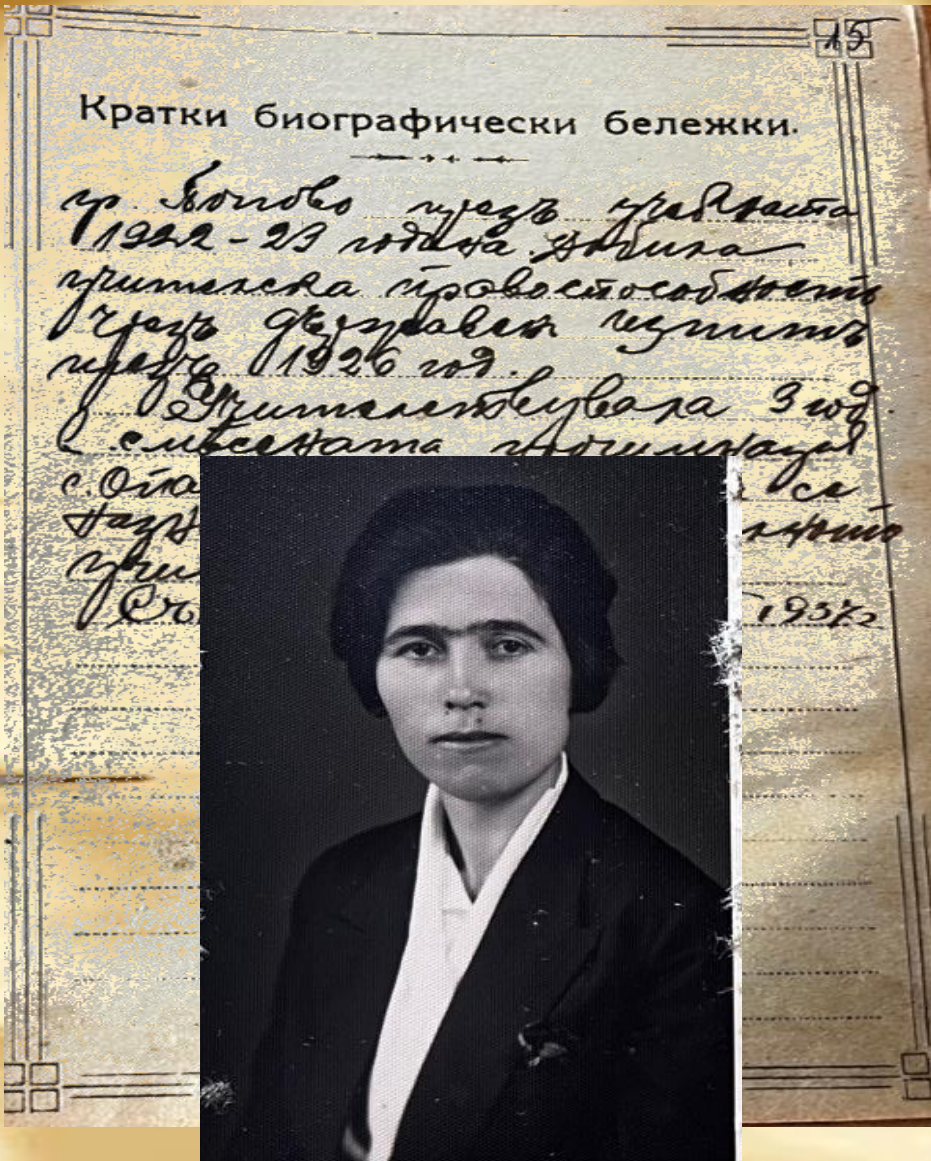 15
Кратки биографически бележки.
гр. Попово презъ учебната
1922 - 23 година. Добила
учителска правоспособность
чрезъ държавен изпитъ
презъ 1926 год.
Учителствувала 3 год.
в смесената прогимназия
с. Опа се
назн
учи
1937 г.